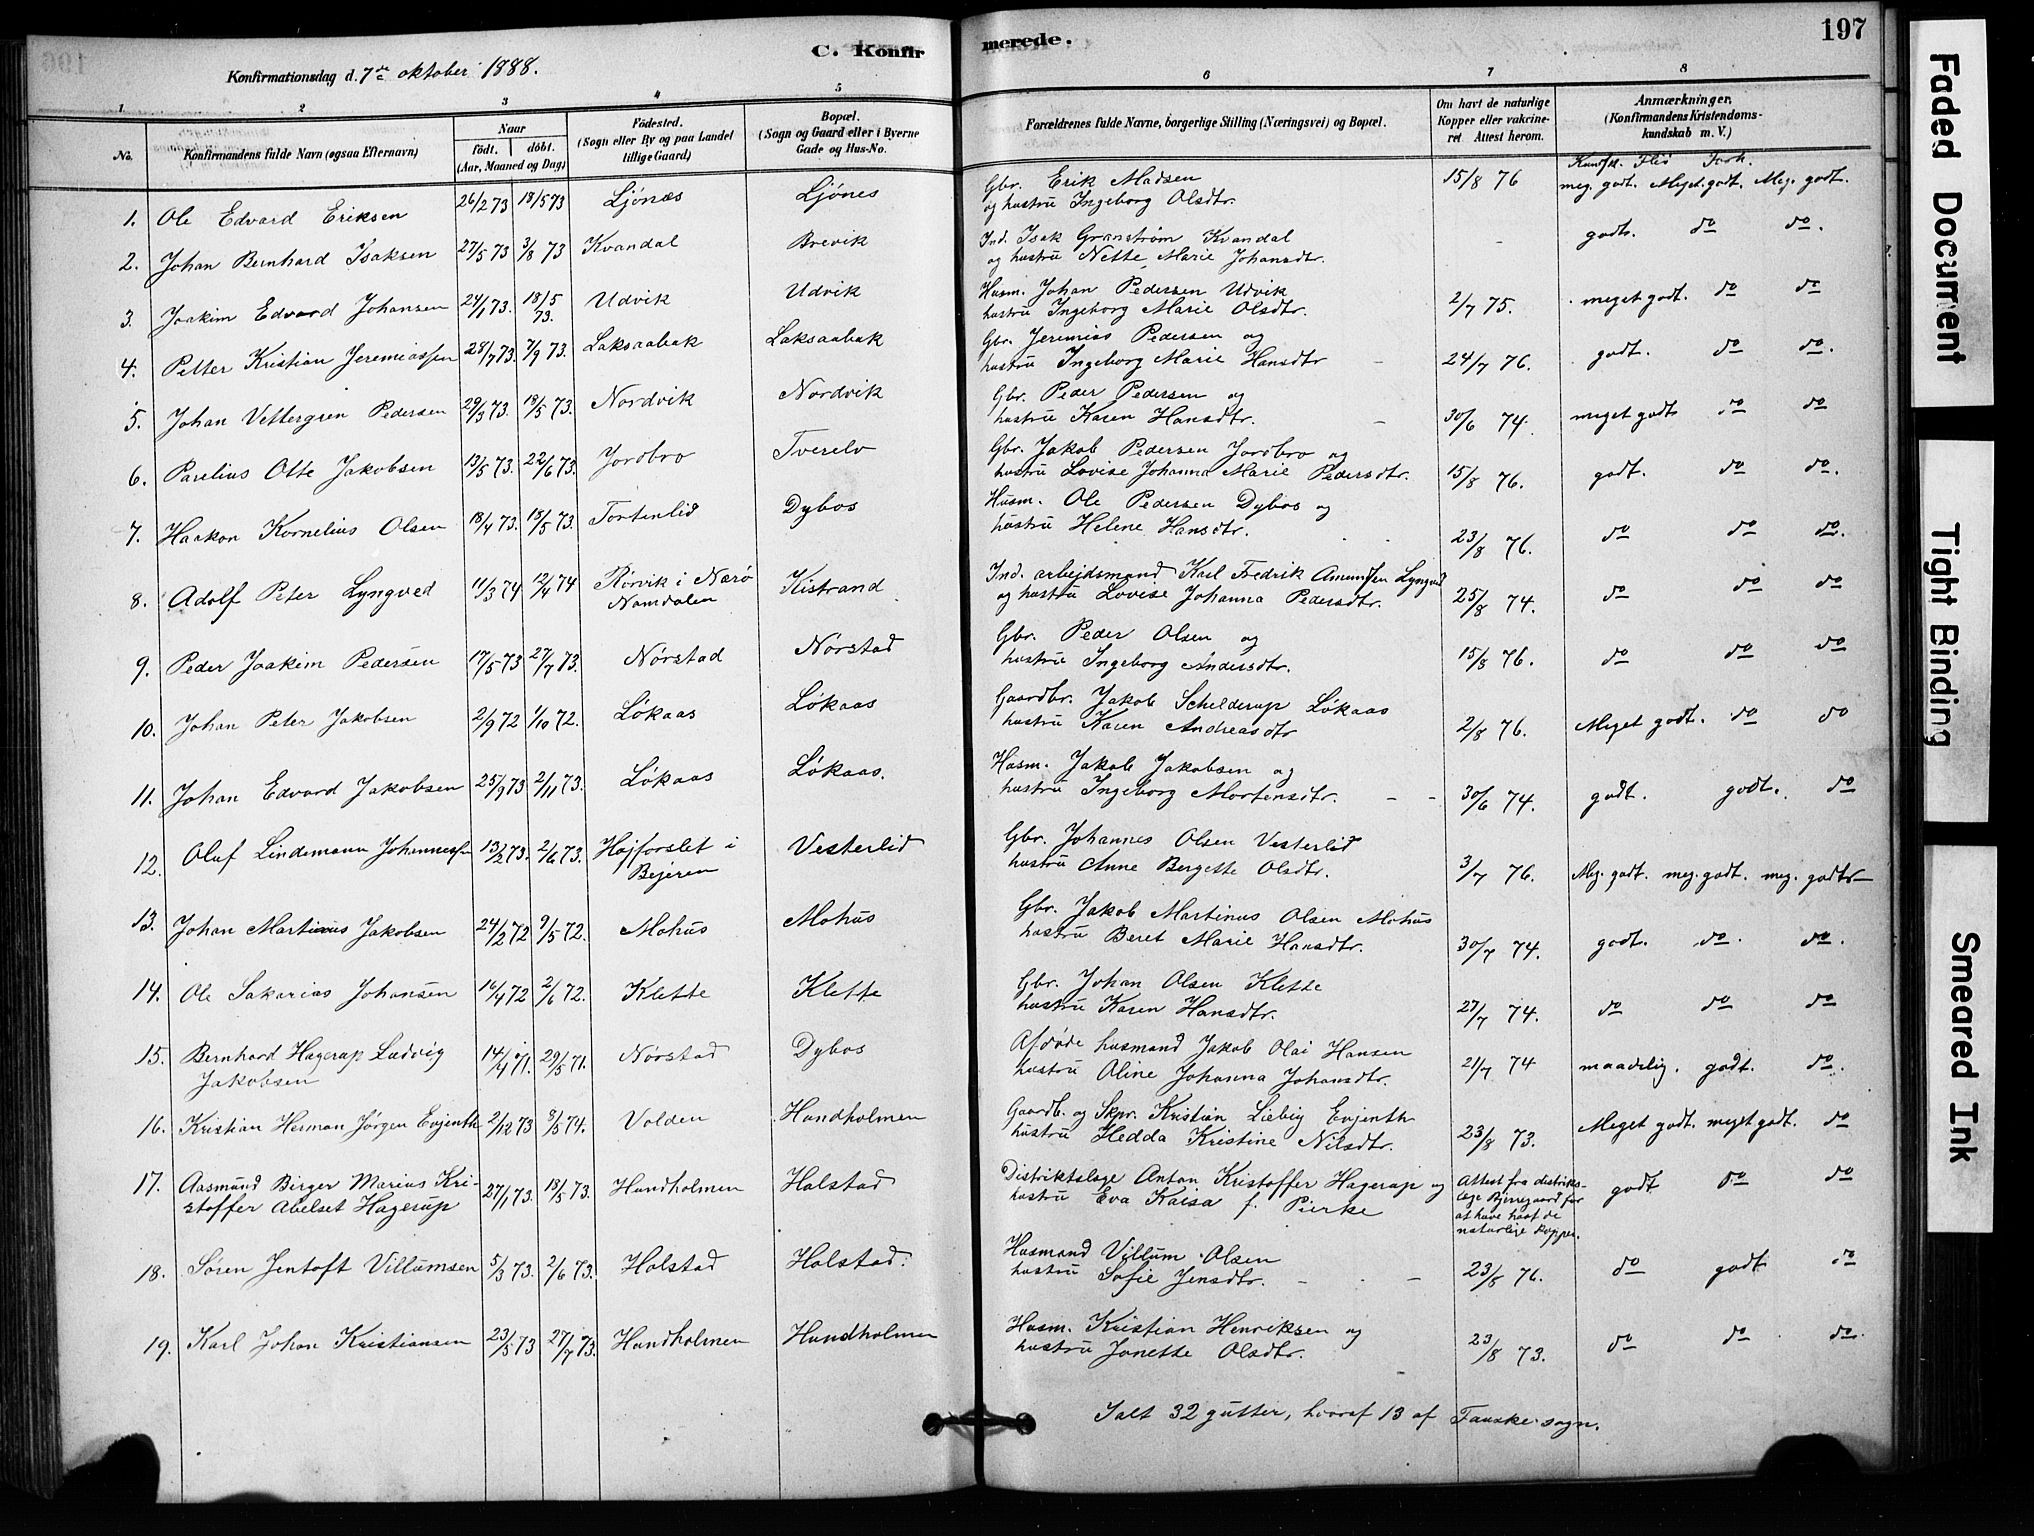 C. Konfirmerede. 197
Konfirmationsdag d. 7de oktober 1888.
1 2 3 4 5 6 7 8
No. Konfirmandens fulde Navn (ogsaa Efternavn) Naar født. døbt. (Aar, Maaned og Dag) Fødested. (Sogn eller By og paa Landet tillige Gaard) Bopæl. (Sogn og Gaard eller i Byerne Gade og Hus-No. Forældrenes fulde Navne, borgerlige Stilling (Næringsvei) og Bopæl. Om havt de naturlige Kopper eller vakcineret Attest herom. Anmærkninger. (Konfirmandens Kristendomskundskab m. V.)
Kundsk. Flid Forh.
1. Ole Edvard Eriksen 26/2 73 18/5 73 Ljønæs Ljönes Gbr. Erik Madsen 15/8 76 meg. godt. Meget godt. Meg. godt.
og hustru Ingeborg Olsdtr.
2. Johan Bernhard Isaksen 27/5 73 3/8 73 Kvandal Brevik Ind. Isak Granstrøm Kvandal - godt. do do.
og hustru Nette Marie Johansdtr.
3. Joakim Edvard Johansen 24/1 73. 18/5 73. Udvik Udvik Husm. Johan Pedersen Udvik 2/7 75. meget godt. do do
hustru Ingeborg Marie Olsdtr.
4. Petter Kristian Jeremiassen 28/7 73. 7/9 73. Laksaabak Laksaabak Gbr. Jeremias Pedersen og 24/7 76. godt. do do.
hustru Ingeborg Marie Hansdtr
5. Johan Vettergren Pedersen 29/3 73. 18/5 73. Nordvik Nordvik Gbr. Peder Pedersen og 30/6 74. meget godt do do
hustru Karen Hansdtr.
6. Parelius Otte Jakobsen 13/5 73. 22/6 73. Jordbro Tverelv Gbr. Jakob Pedersen Jordbro og 15/8 76. godt. do do.
hustru Lovise Johanna Marie Pedersdtr.
7. Haakon Kornelius Olsen 18/4 73. 18/5 73. Tortenlid Dybos Husm. Ole Pedersen Dybos og 23/8 76. do do do.
hustru Helene Hansdtr.
8. Adolf Peter Lyngved 11/3 74 12/4 74 Rørvik i Nærø Namdalen Kistrand Ind. arbejdsmand Karl Fredrik Amundsen Lyngved 25/8 74. do do do
og hustru Lovise Johanna Pedersdtr.
9. Peder Joakim Pedersen 17/5 73 27/7 73. Nørstad Nørstad Gbr. Peder Olsen og 15/8 76. do do do
hustru Ingeborg Andersdtr.
10. Johan Peter Jakobsen 2/9 72 1/10 72. Løkaas Løkaas Gaardbr. Jakob Schelderup Løkaas 2/8 76. Meget godt. do do
hustru Karen Andreasdtr
11. Johan Edvard Jakobsen 25/9 73 2/11 73. Løkaas Løkaas. Husm. Jakob Jakobsen og 30/6 74. godt. godt. do
hustru Ingeborg Mortensdtr. - -
12. Oluf Lindemann Johannessen 13/2 73. 2/6 73. Højforslet i Bejeren Vesterlid Gbr. Johannes Olsen Vesterlid 3/7 76. Meg. godt. meg. godt. meg. godt
hustru Anne Bergette Olsdtr.
13. Johan Martinus Jakobsen 24/2 72 9/5 72. Mohus Mohus Gbr. Jakob Martinus Olsen Mohus 30/7 74. godt. do. do.
hustru Beret Marie Hansdtr.
14. Ole Sakarias Johansen 16/4 72 2/6 72. Klette Klette Gbr. Johan Olsen Klette 27/7 74. do do do
hustru Karen Hansdtr.
15. Bernhard Hagerup Ludvig Jakobsen 14/4 71. 29/5 71. Nørstad Dybos Afdøde husmand Jakob Olai Hansen 21/7 74 maadelig. godt. do.
hustru Oline Johanna Johansdtr.
16. Kristian Herman Jørgen Evjenth 2/12 73 8/5 74. Volden Hundholmen Gaardb. og Skpr. Kristian Liebig Evjenth 23/8 73. Meget godt. meget godt. do
hustru Hedda Kristine Nilsdtr.
17. Aasmund Birger Marius Kristoffer Abelset Hagerup 27/1 73. 18/5 73. Hundholmen Halstad Distriktslæge Anton Kristoffer Hagerup og Attest fra distriks- godt do do
hustru Eva Kaisa f. Pierke læge Bjerregaard for
at have havt de
naturlige Kopper.
18. Søren Jentoft Villumsen 5/3 73. 2/6 73. Halstad Halstad. Husmand Villum Olsen 23/8 76. do godt do
hustru Sofie Jensdtr. -
19. Karl Johan Kristiansen 23/5 73 27/7 73. Hundholmen Hundholmen Husm. Kristian Henriksen og 23/8 73. do do do.
hustru Janette Olsdtr.
Ialt 32 gutter, hvoraf 13 af Fauske sogn.
Faded Document
Tight Binding
Smeared Ink